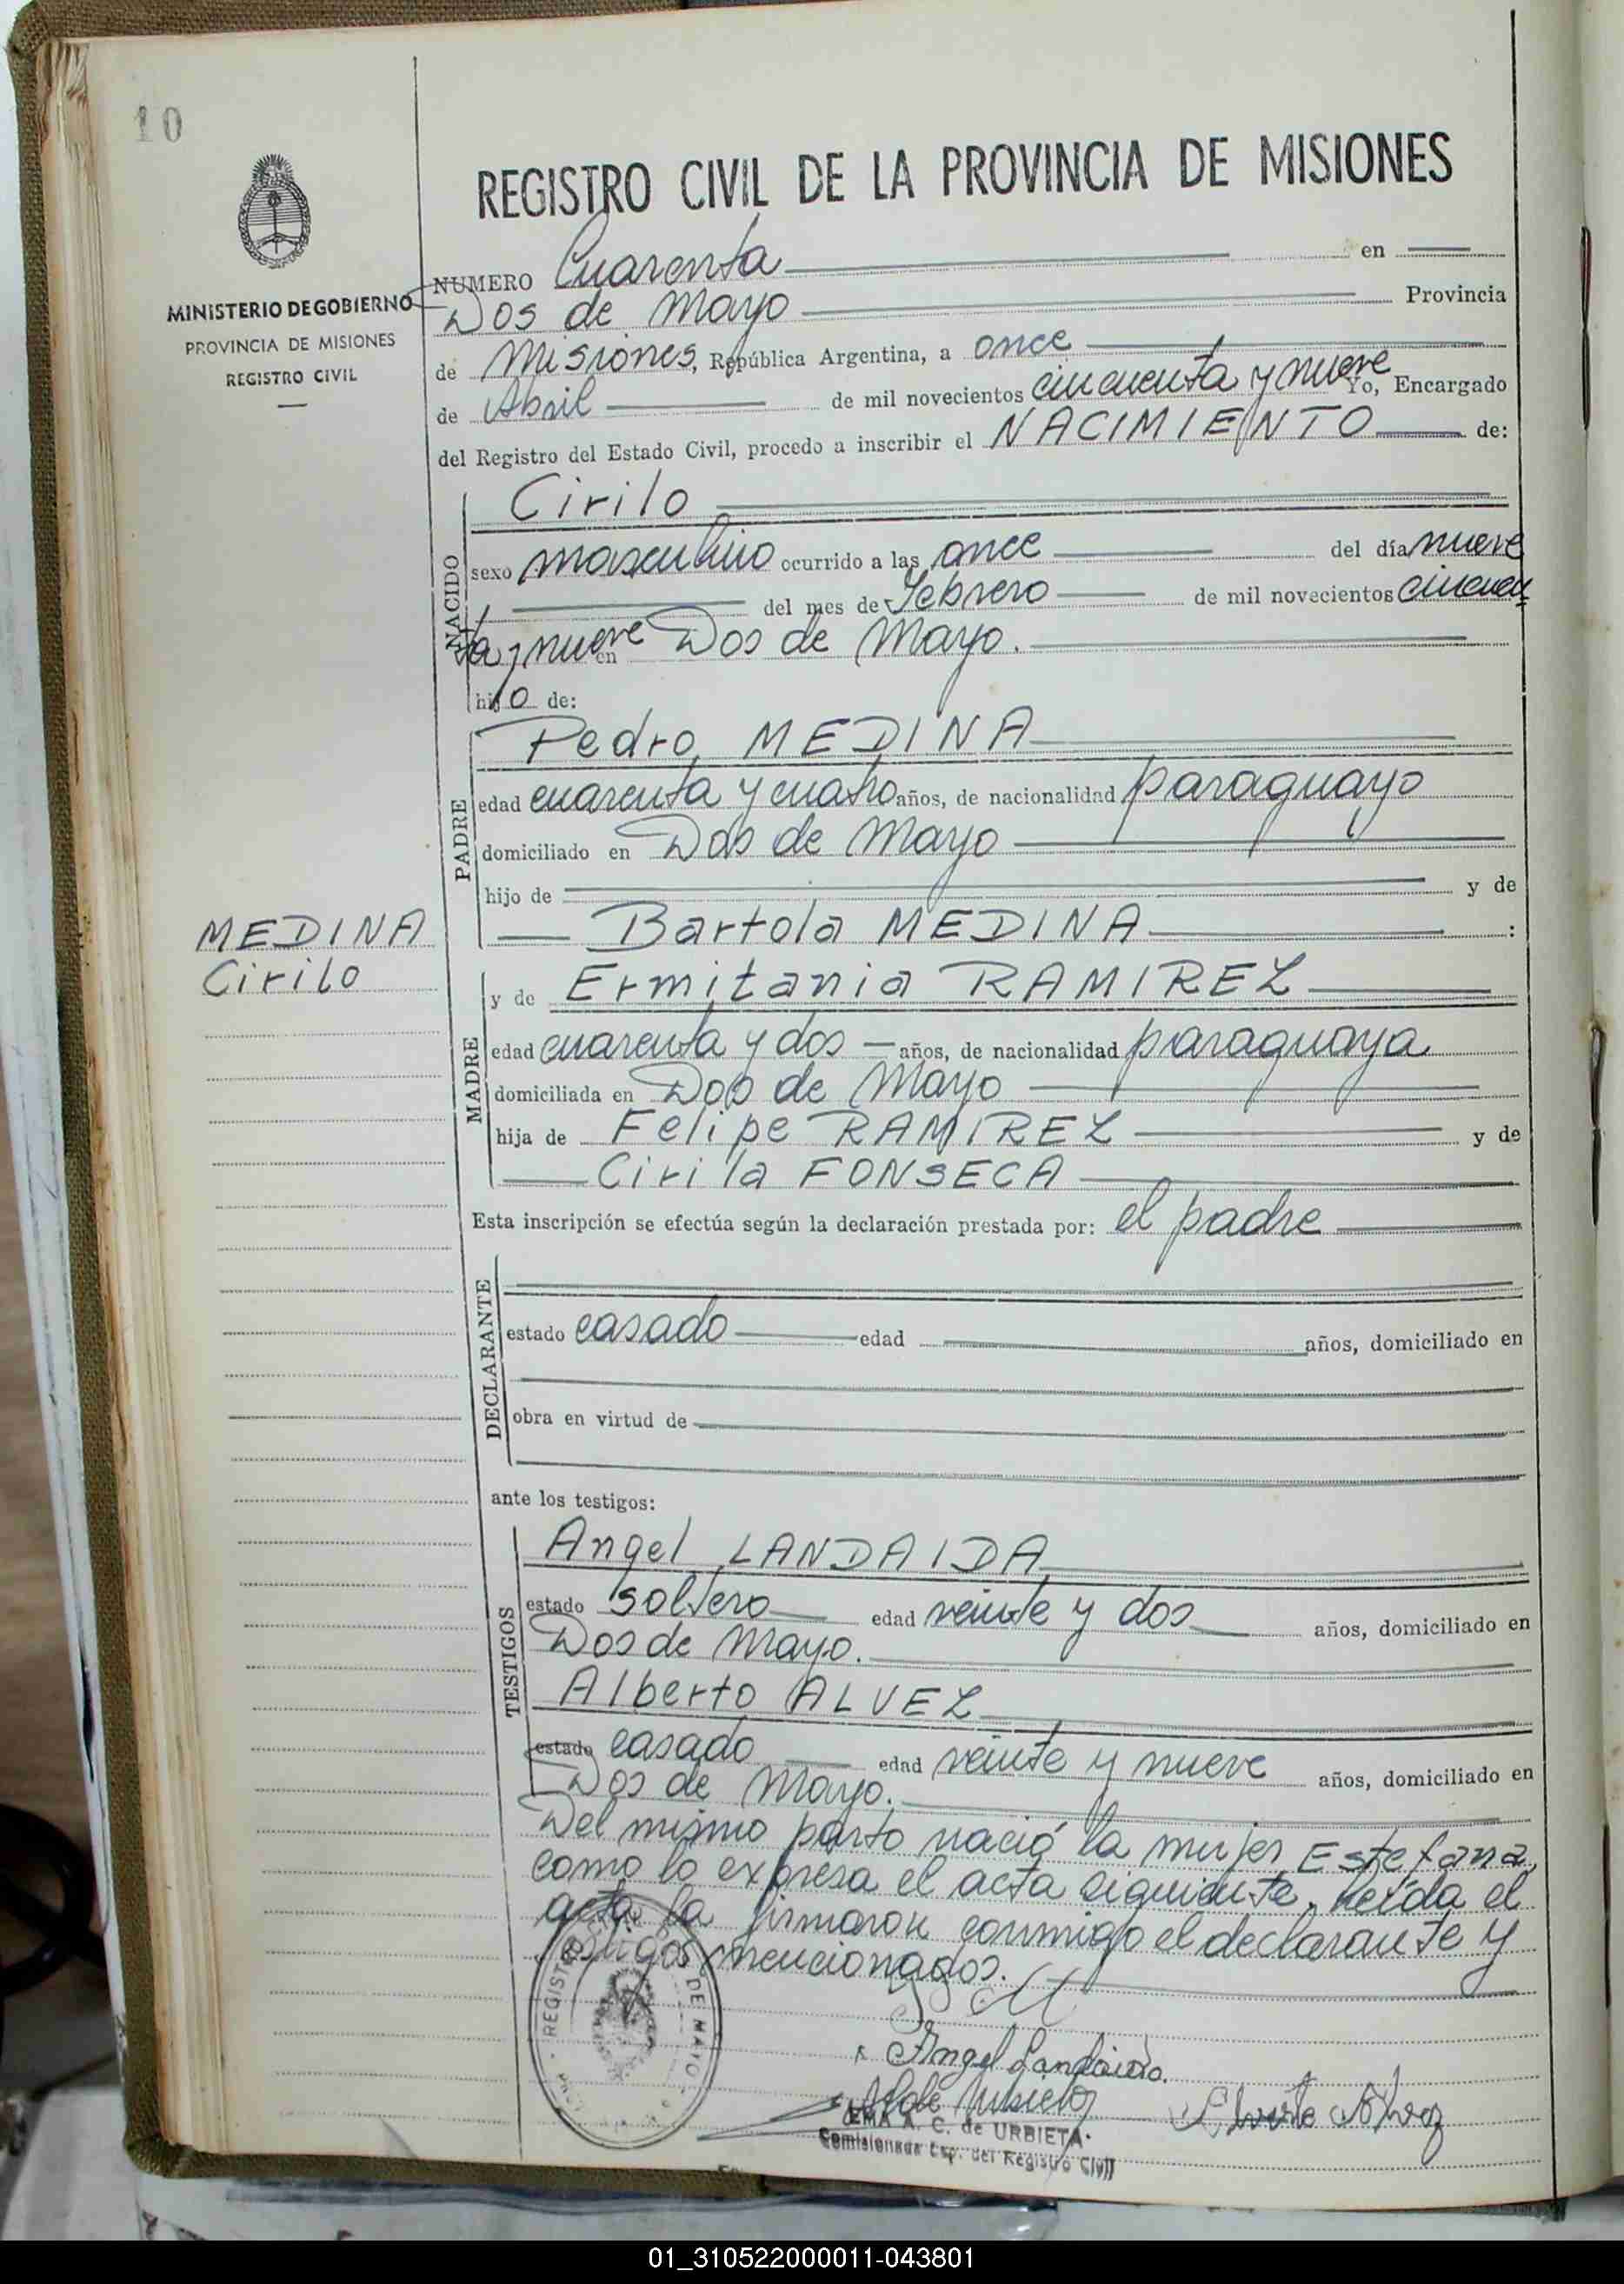 10
REGISTRO CIVIL DE LA PROVINCIA DE MISIONES
MINISTERIO DE GOBIERNO
PROVINCIA DE MISIONES
REGISTRO CIVIL
NUMERO Cuarenta en
Dos de Mayo Provincia
de Misiones, República Argentina, a once
de Abril de mil novecientos cincuenta y nueve Yo, Encargado
del Registro del Estado Civil, procedo a inscribir el NACIMIENTO de:
NACIDO
Cirilo
sexo masculino ocurrido a las once del día nueve
del mes de Febrero de mil novecientos cincuen
ta y nueve en Dos de Mayo.
hijo de:
PADRE
Pedro MEDINA
edad cuarenta y cuatro años, de nacionalidad paraguayo
domiciliado en Dos de Mayo
hijo de y de
Bartola MEDINA :
MEDINA
Cirilo
MADRE
y de Ermitania RAMIREZ
edad cuarenta y dos años, de nacionalidad paraguaya
domiciliada en Dos de Mayo
hija de Felipe RAMIREZ y de
Cirila FONSECA
Esta inscripción se efectúa según la declaración prestada por: el padre
DECLARANTE
estado casado edad años, domiciliado en
obra en virtud de
ante los testigos:
TESTIGOS
Angel LANDAIDA
estado soltero edad veinte y dos años, domiciliado en
Dos de Mayo.
Alberto ALVEZ
estado casado edad veinte y nueve años, domiciliado en
Dos de Mayo.
Del mismo parto nació la mujer Estefana,
como lo expresa el acta siguiente. Leída el
acta la firmaron conmigo el declarante y
testigos mencionados.
REGISTRO DE MAYO
Angel Landaida.
Alberto Alvez
EMA A. C. de URBIETA
Comisionada Esp. del Registro Civil
01_310522000011-043801